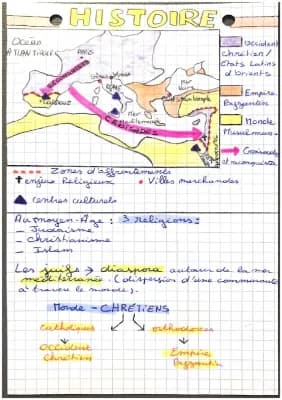 HISTOIRE
OCÉAN
ATLANTIQUE
PARIS
RECONQUISTA
ROME
Mer
Noire
Constantinople
Cordoue
Mer
Méditerranée
CROISADES
Occident
Chrétien/
Etats Latins
d'Orients
Empire
Byzantin
Monde
Musulman
Croisades
et reconquista
Zones d'affrontements
enjeux Religieux
Villes marchandes
centres culturels
Au moyen-Âge : 3 religions:
— Judaïsme
— Christianisme
— Islam
Les juifs → diaspora autour de la mer
méditerranée. (dispersion d'une communauté
à travers le monde).
Monde - CHRÉTIENS
catholiques
orthodoxes
Occident
Chrétien
Empire
Byzantin